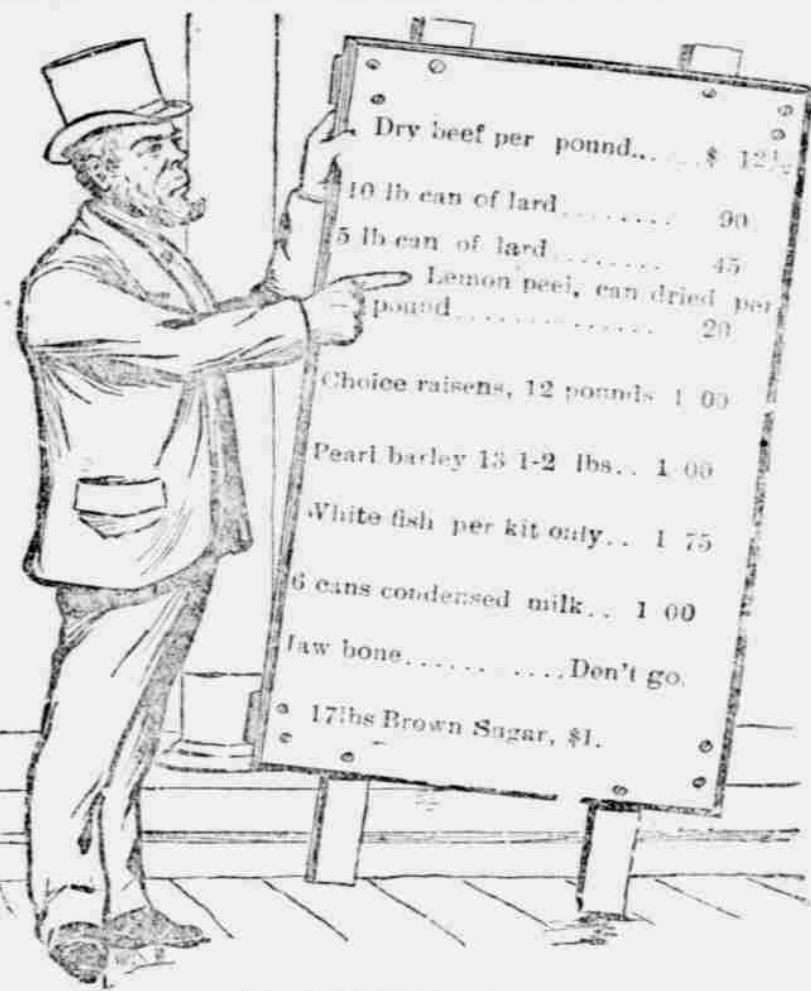 Dry beef per pound......$ 12½
10 lb can of lard......... 90
5 lb can of lard......... 45
Lemon peel, can dried per
pound............... 20
Choice raisens, 12 pounds 1 00
Pearl barley 13 1-2 lbs.. 1 00
White fish per kit only.. 1 75
6 cans condensed milk.. 1 00
Jaw bone............Don't go.
17lbs Brown Sugar, $1.